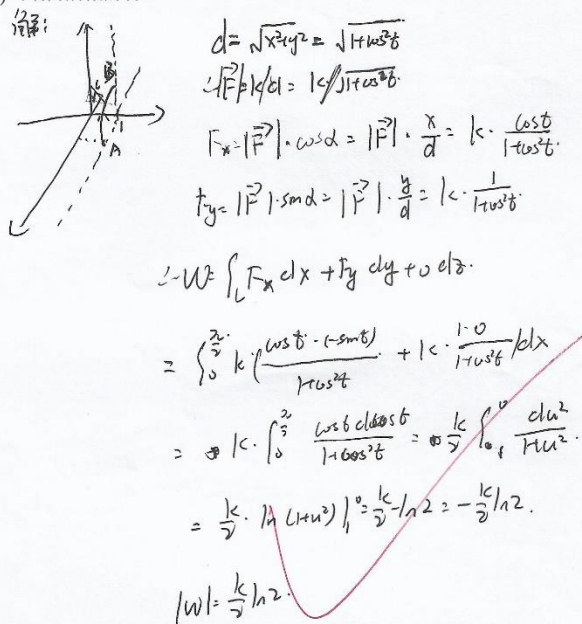 解:
B
A
1
d = √(x²+y²) = √(1+cos²t)
∴|F⃗| = k/d = k/√(1+cos²t).
Fx = |F⃗|·cosα = |F⃗|·x/d = k·cost/(1+cos²t).
Fy = |F⃗|·sinα = |F⃗|·y/d = k·1/(1+cos²t).
∴W = ∫_L Fx dx + Fy dy + 0 dz.
= ∫_0^{π/2} k·(cost·(-sint)/(1+cos²t) + k·1·0/(1+cos²t))dx
= k·∫_0^{π/2} cost dcost/(1+cos²t) = k/2 ∫_1^0 du²/(1+u²).
= k/2·ln(1+u²)|_1^0 = k/2·-ln2 = -k/2 ln2.
|W| = k/2 ln2.